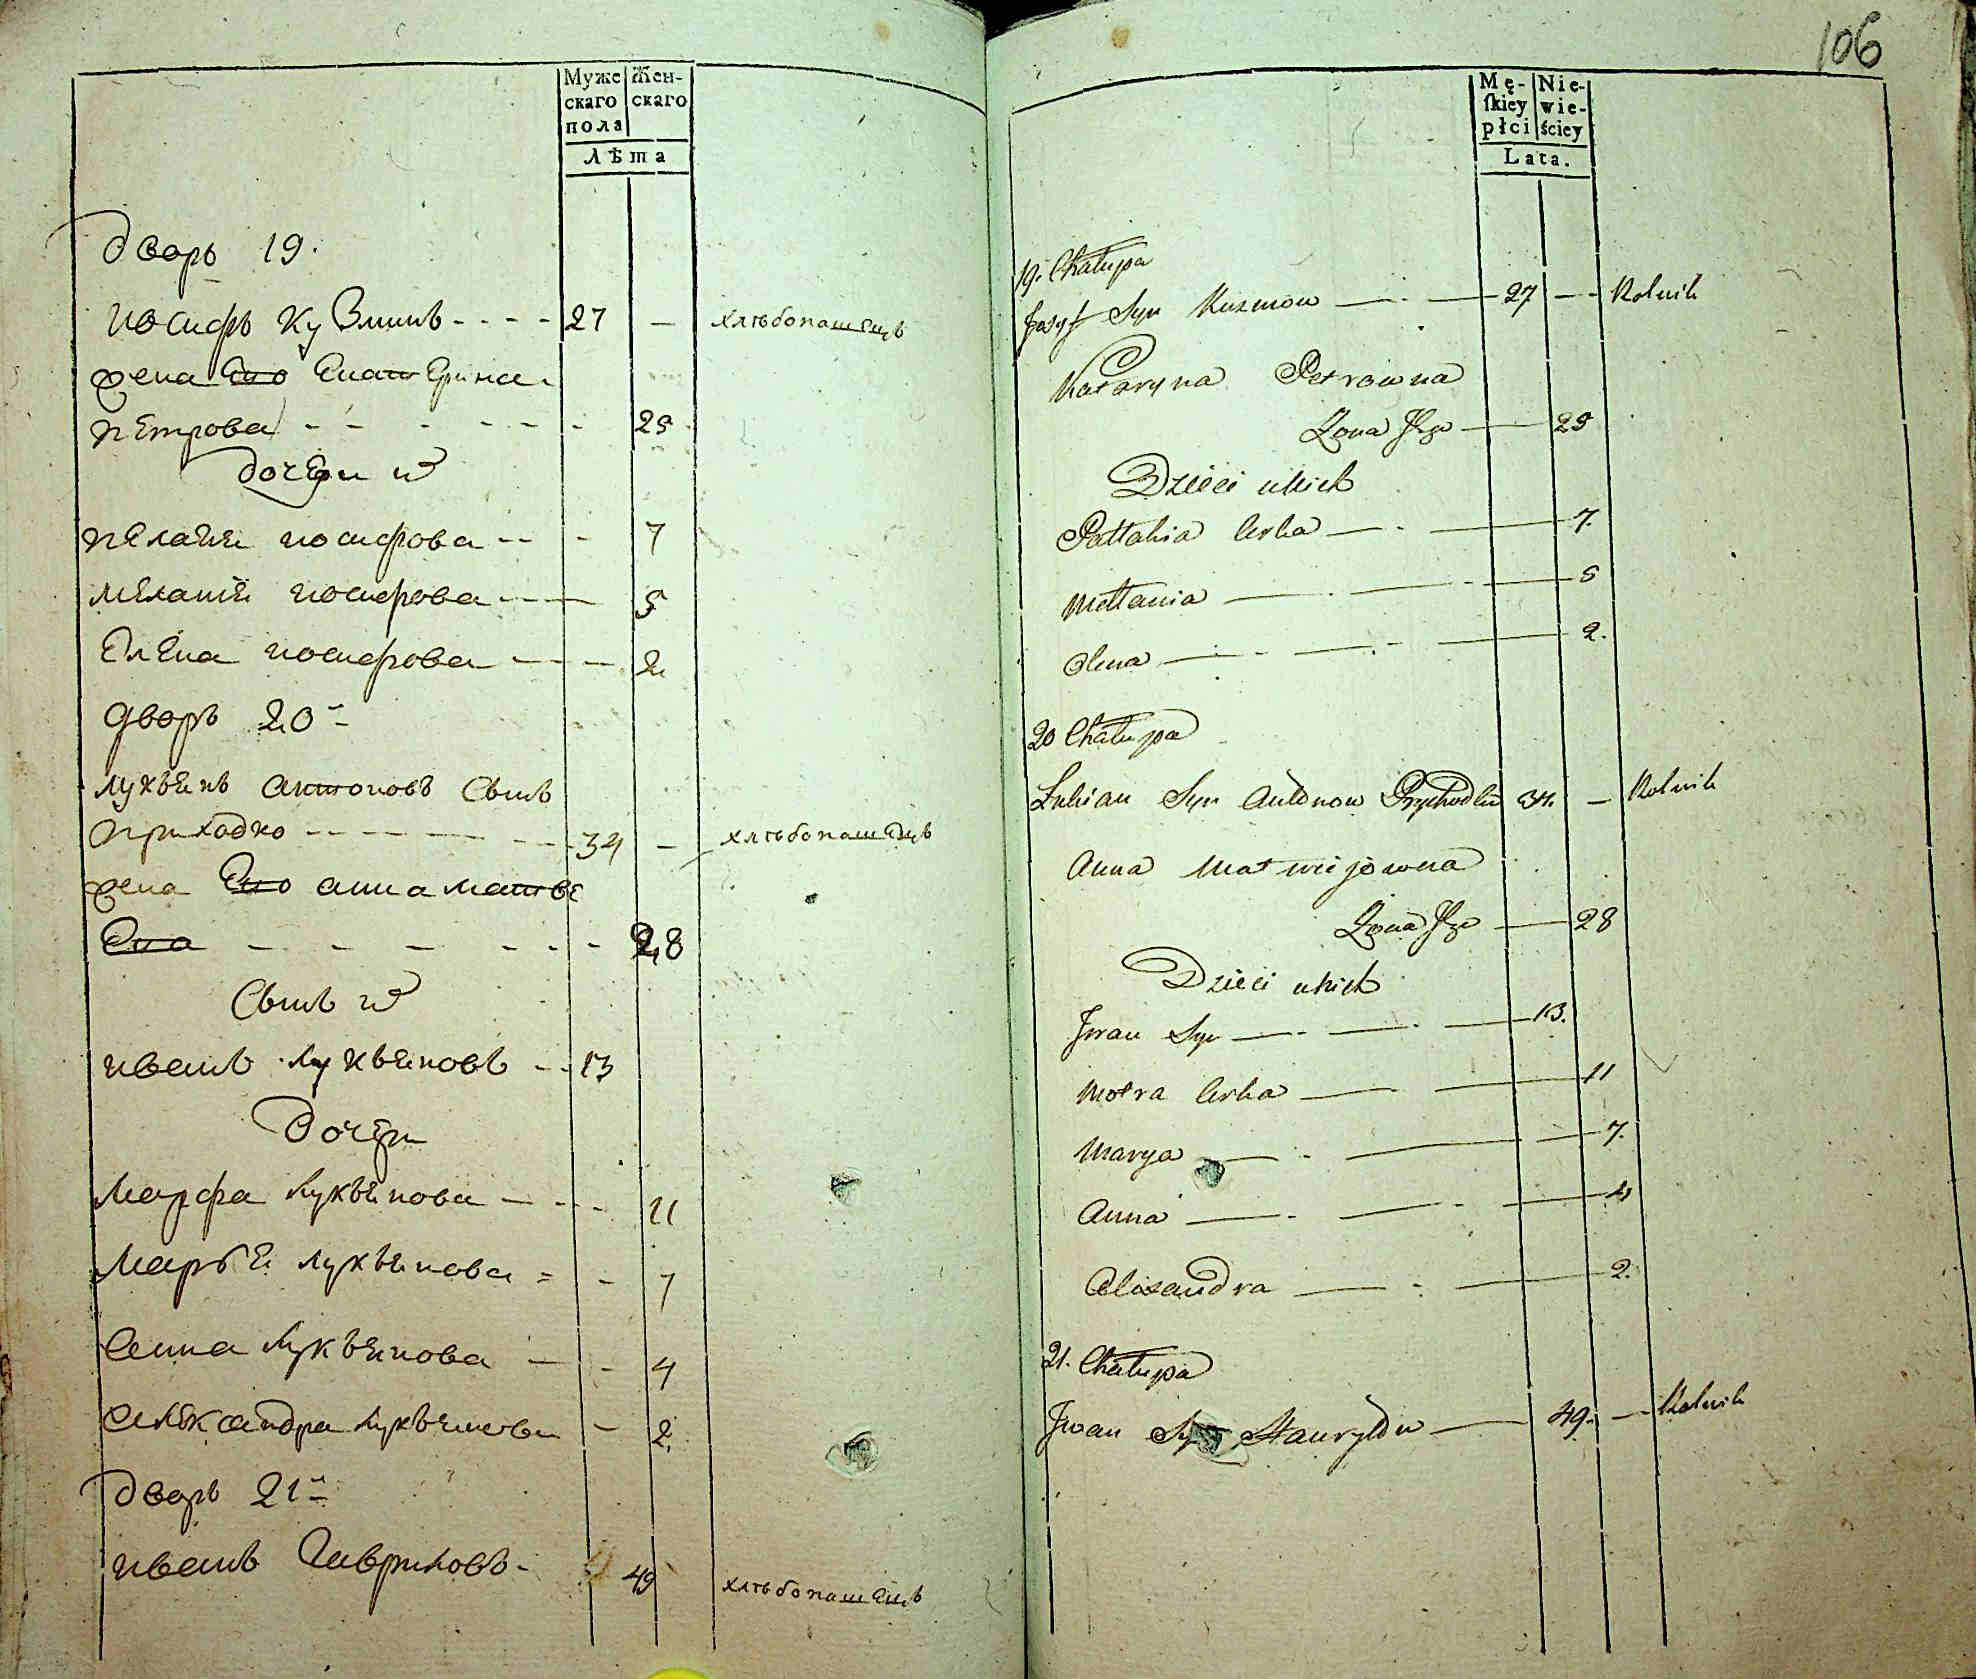 Муже Жен-
скаго скаго
пола
Лѣта
дворъ 19.
иосифъ кузминъ - - - - 27 — хлѣбопашецъ
жена Его Екатерина
петрова - - - - - - - 25
дочери и
пелагея иосифова - - - 7
меланiя иосифова - - — 5
Елена иосифова - - — 2
дворъ 20
лукьянъ антоновъ сынъ
приходко - - - - - - 34 — хлѣбопашецъ
жена Его анна матве
Ева - - - - - - 28
сынъ и
иванъ лукьяновъ - - 13
дочери
марфа лукьянова - - - 11
марья лукьянова = - 7
анна лукьянова - - 4
александра лукьянова - 2
дворъ 21
иванъ Гавриловъ - 49 хлѣбопашецъ
106
Mę- Nie-
skiey wie-
płci ściey
Lata.
19. Chałupa
Jozyf Syn Kuzmow — 27 — Rolnik
Kataryna Petrowna
Zona Jego — 25
Dzieci u nich
Pallahia Corka — 7.
Mellania — 5
Olena — 2.
20 Chałupa
Lukian Syn Antonow Prychodko 34. — Rolnik
Anna Matwiejowna
Zona Jego — 28
Dzieci u nich
Jwan Syn — 13.
Motra Corka — 11
Marya — 7.
Anna — 4
Alixandra — 2.
21. Chałupa
Jwan Syn Hawryłow — 49. — Rolnik